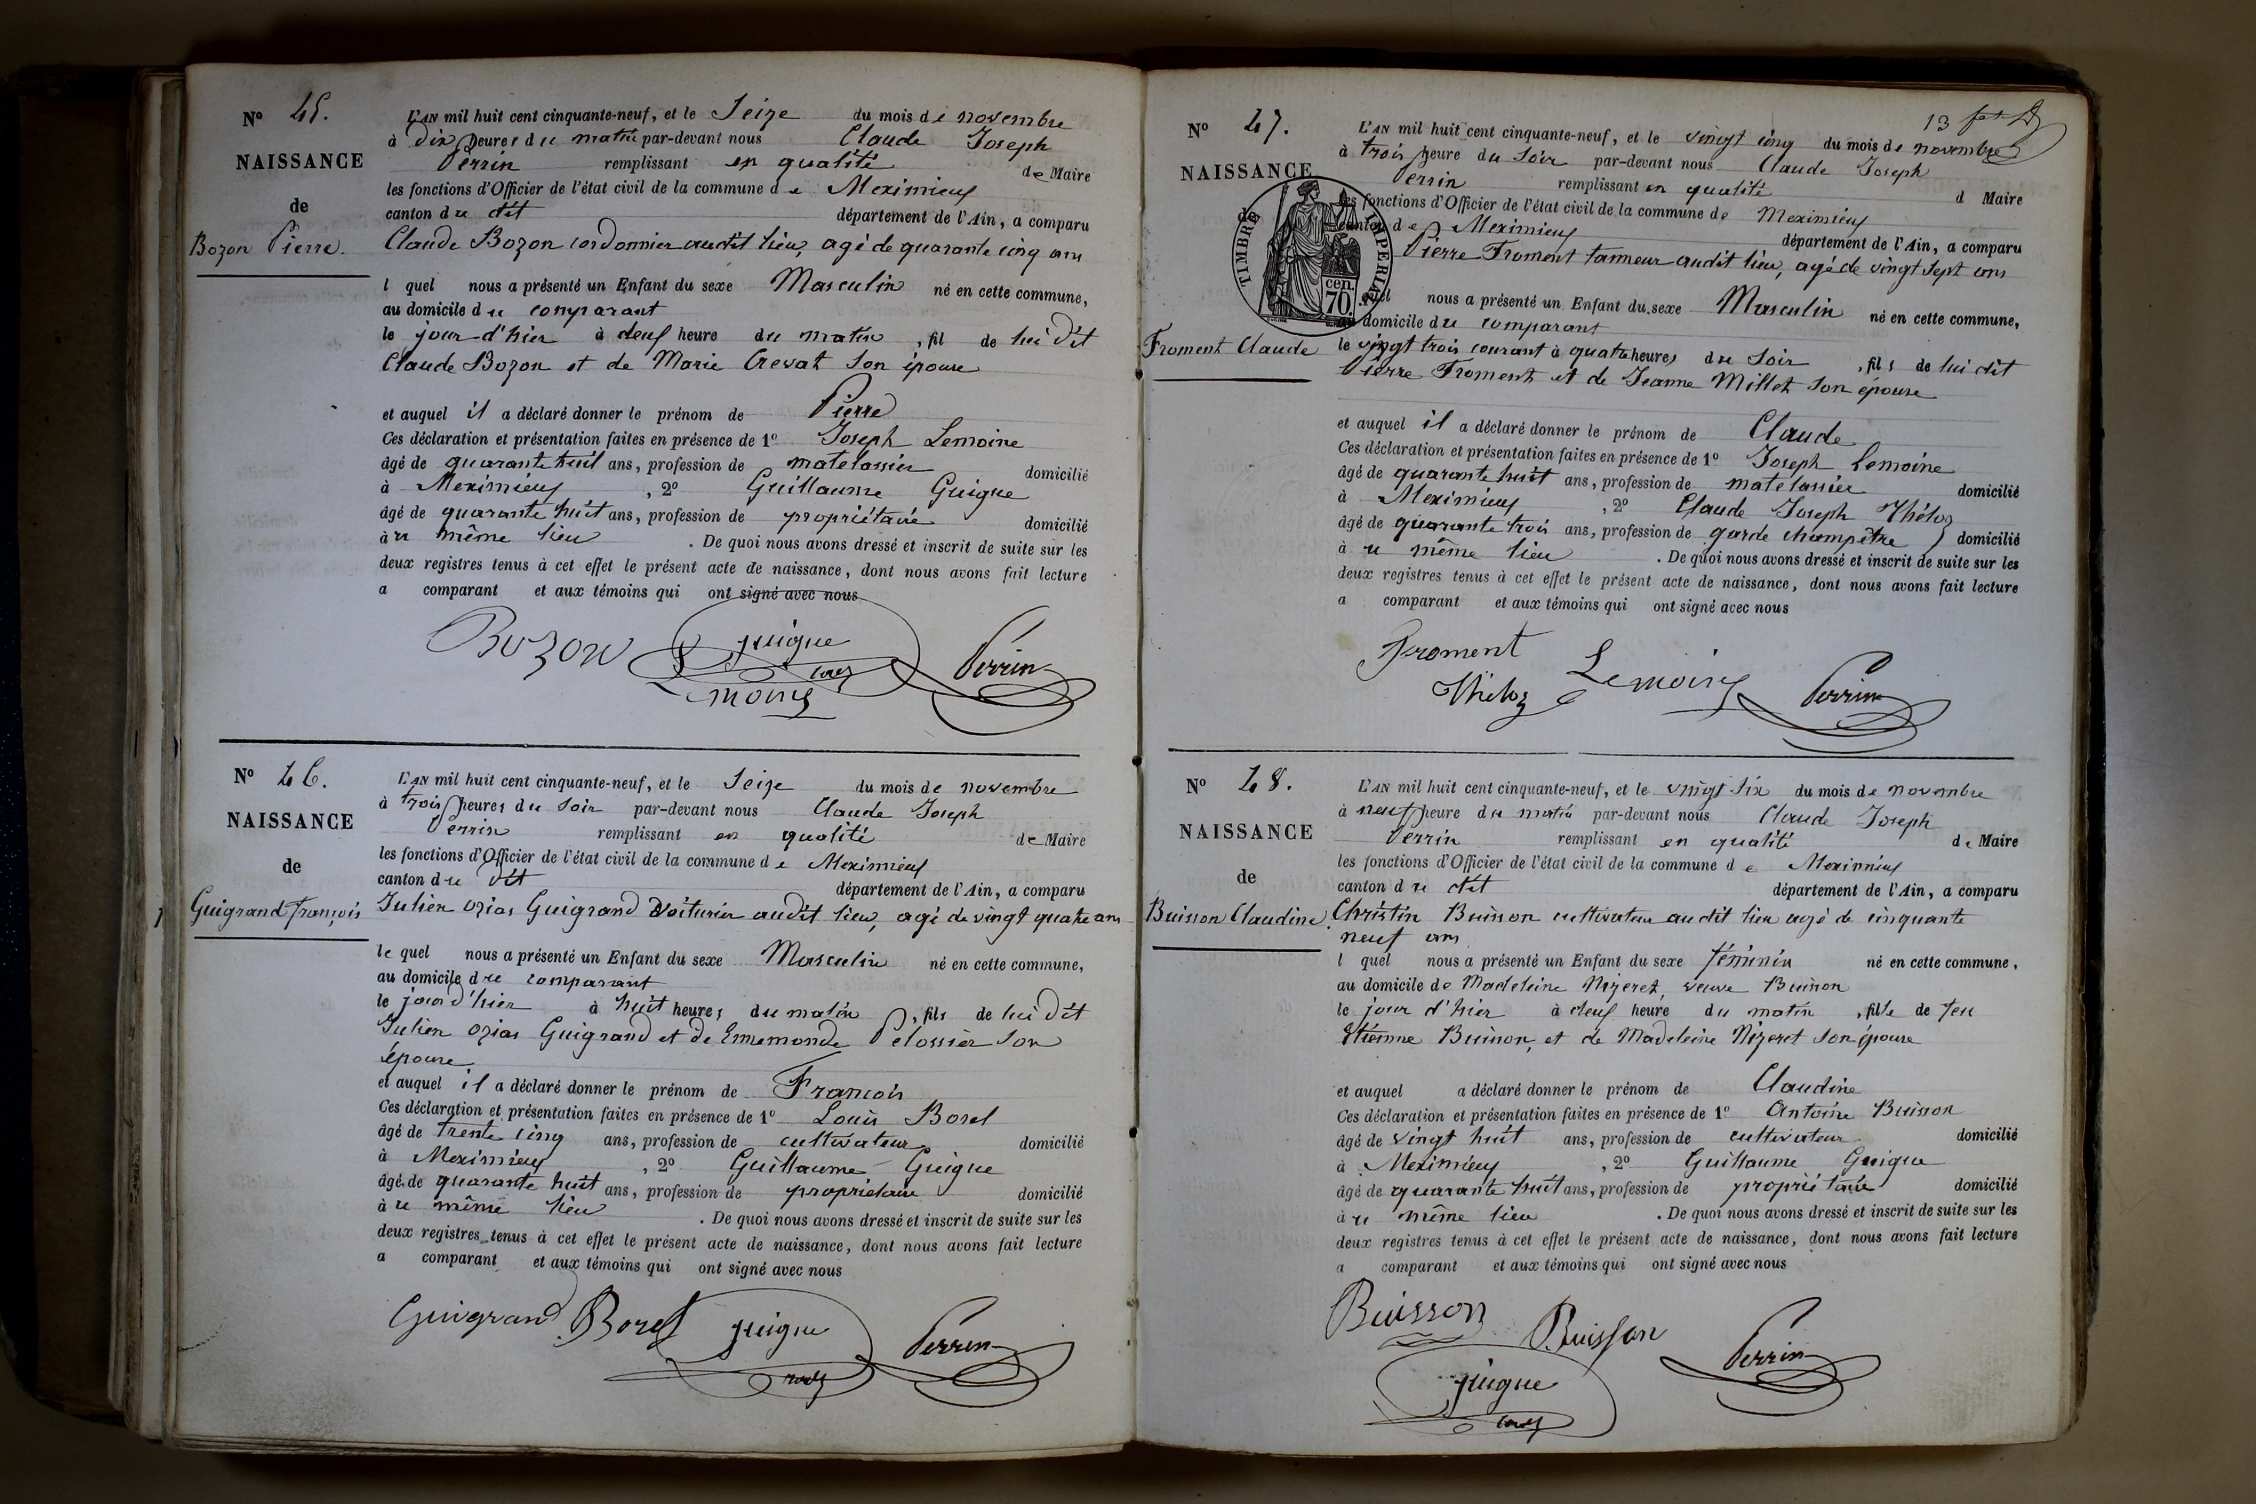 Nº 45.
NAISSANCE
de
Bozon Pierre.
L'AN mil huit cent cinquante-neuf, et le Seize du mois de novembre
à dix heures du matin par-devant nous Claude Joseph
Perrin remplissant en qualité de Maire
les fonctions d'Officier de l'état civil de la commune de Meximieux
canton du dit département de l'Ain, a comparu
Claude Bozon cordonnier audit lieu, agé de quarante cinq ans
l quel nous a présenté un Enfant du sexe Masculin né en cette commune,
au domicile du comparant
le jour d'hier à deux heure du matin, fil de lui dit
Claude Bozon et de Marie Crevat son épouse
et auquel il a déclaré donner le prénom de Pierre
Ces déclaration et présentation faites en présence de 1º Joseph Lemoine
âgé de quarante huit ans, profession de matelassier domicilié
à Meximieux, 2º Guillaume Guigue
âgé de quarante huit ans, profession de propriétaire domicilié
au même lieu. De quoi nous avons dressé et inscrit de suite sur les
deux registres tenus à cet effet le présent acte de naissance, dont nous avons fait lecture
a comparant et aux témoins qui ont signé avec nous
Bozon guigue Perrin
Lemoine
Nº 46.
NAISSANCE
de
Guigrand françois
L'AN mil huit cent cinquante-neuf, et le Seize du mois de novembre
à trois heures du soir par-devant nous Claude Joseph
Perrin remplissant en qualité de Maire
les fonctions d'Officier de l'état civil de la commune de Meximieux
canton du dit département de l'Ain, a comparu
Julien ozias Guigrand Voiturier audit lieu, agé de vingt quatre ans
le quel nous a présenté un Enfant du sexe Masculin né en cette commune,
au domicile du comparant
le jour d'hier à huit heures du matin, fils de lui dit
Julien ozias Guigrand et de Ennemonde Pelossier son
épouse
et auquel il a déclaré donner le prénom de François
Ces déclaration et présentation faites en présence de 1º Louis Borel
âgé de trente cinq ans, profession de cultivateur domicilié
à Meximieux, 2º Guillaume Guigue
âgé de quarante huit ans, profession de propriétaire domicilié
au même lieu. De quoi nous avons dressé et inscrit de suite sur les
deux registres tenus à cet effet le présent acte de naissance, dont nous avons fait lecture
a comparant et aux témoins qui ont signé avec nous
Guigrand Borel guigue Perrin
13
Nº 47.
NAISSANCE
de
TIMBRE IMPERIAL
70 cen.
Froment Claude
L'AN mil huit cent cinquante-neuf, et le vingt cinq du mois de novembre
à trois heure du soir par-devant nous Claude Joseph
Perrin remplissant en qualité d Maire
les fonctions d'Officier de l'état civil de la commune de Meximieux
canton de Meximieux département de l'Ain, a comparu
Pierre Froment tanneur audit lieu, agé de vingt sept ans
l quel nous a présenté un Enfant du sexe Masculin né en cette commune,
au domicile du comparant
le vingt trois courant à quatre heures du soir, fils de lui dit
Pierre Froment et de Jeanne Millet son épouse
et auquel il a déclaré donner le prénom de Claude
Ces déclaration et présentation faites en présence de 1º Joseph Lemoine
âgé de quarante huit ans, profession de matelassier domicilié
à Meximieux, 2º Claude Joseph Théloz
âgé de quarante trois ans, profession de garde champêtre domicilié
au même lieu. De quoi nous avons dressé et inscrit de suite sur les
deux registres tenus à cet effet le présent acte de naissance, dont nous avons fait lecture
a comparant et aux témoins qui ont signé avec nous
Froment Lemoine
Théloz Perrin
Nº 48.
NAISSANCE
de
Buisson Claudine.
L'AN mil huit cent cinquante-neuf, et le vingt six du mois de novembre
à neuf heure du matin par-devant nous Claude Joseph
Perrin remplissant en qualité de Maire
les fonctions d'Officier de l'état civil de la commune de Meximieux
canton du dit département de l'Ain, a comparu
Christin Buisson cultivateur audit lieu agé de cinquante
neuf ans
l quel nous a présenté un Enfant du sexe féminin né en cette commune,
au domicile de Madeleine Nizeret, veuve Buisson
le jour d'hier à deux heure du matin, fille de feu
Etienne Buisson, et de Madeleine Nizeret son épouse
et auquel a déclaré donner le prénom de Claudine
Ces déclaration et présentation faites en présence de 1º Antoine Buisson
âgé de vingt huit ans, profession de cultivateur domicilié
à Meximieux, 2º Guillaume Guigue
âgé de quarante huit ans, profession de propriétaire domicilié
au même lieu. De quoi nous avons dressé et inscrit de suite sur les
deux registres tenus à cet effet le présent acte de naissance, dont nous avons fait lecture
a comparant et aux témoins qui ont signé avec nous
Buisson Buisson Perrin
guigue